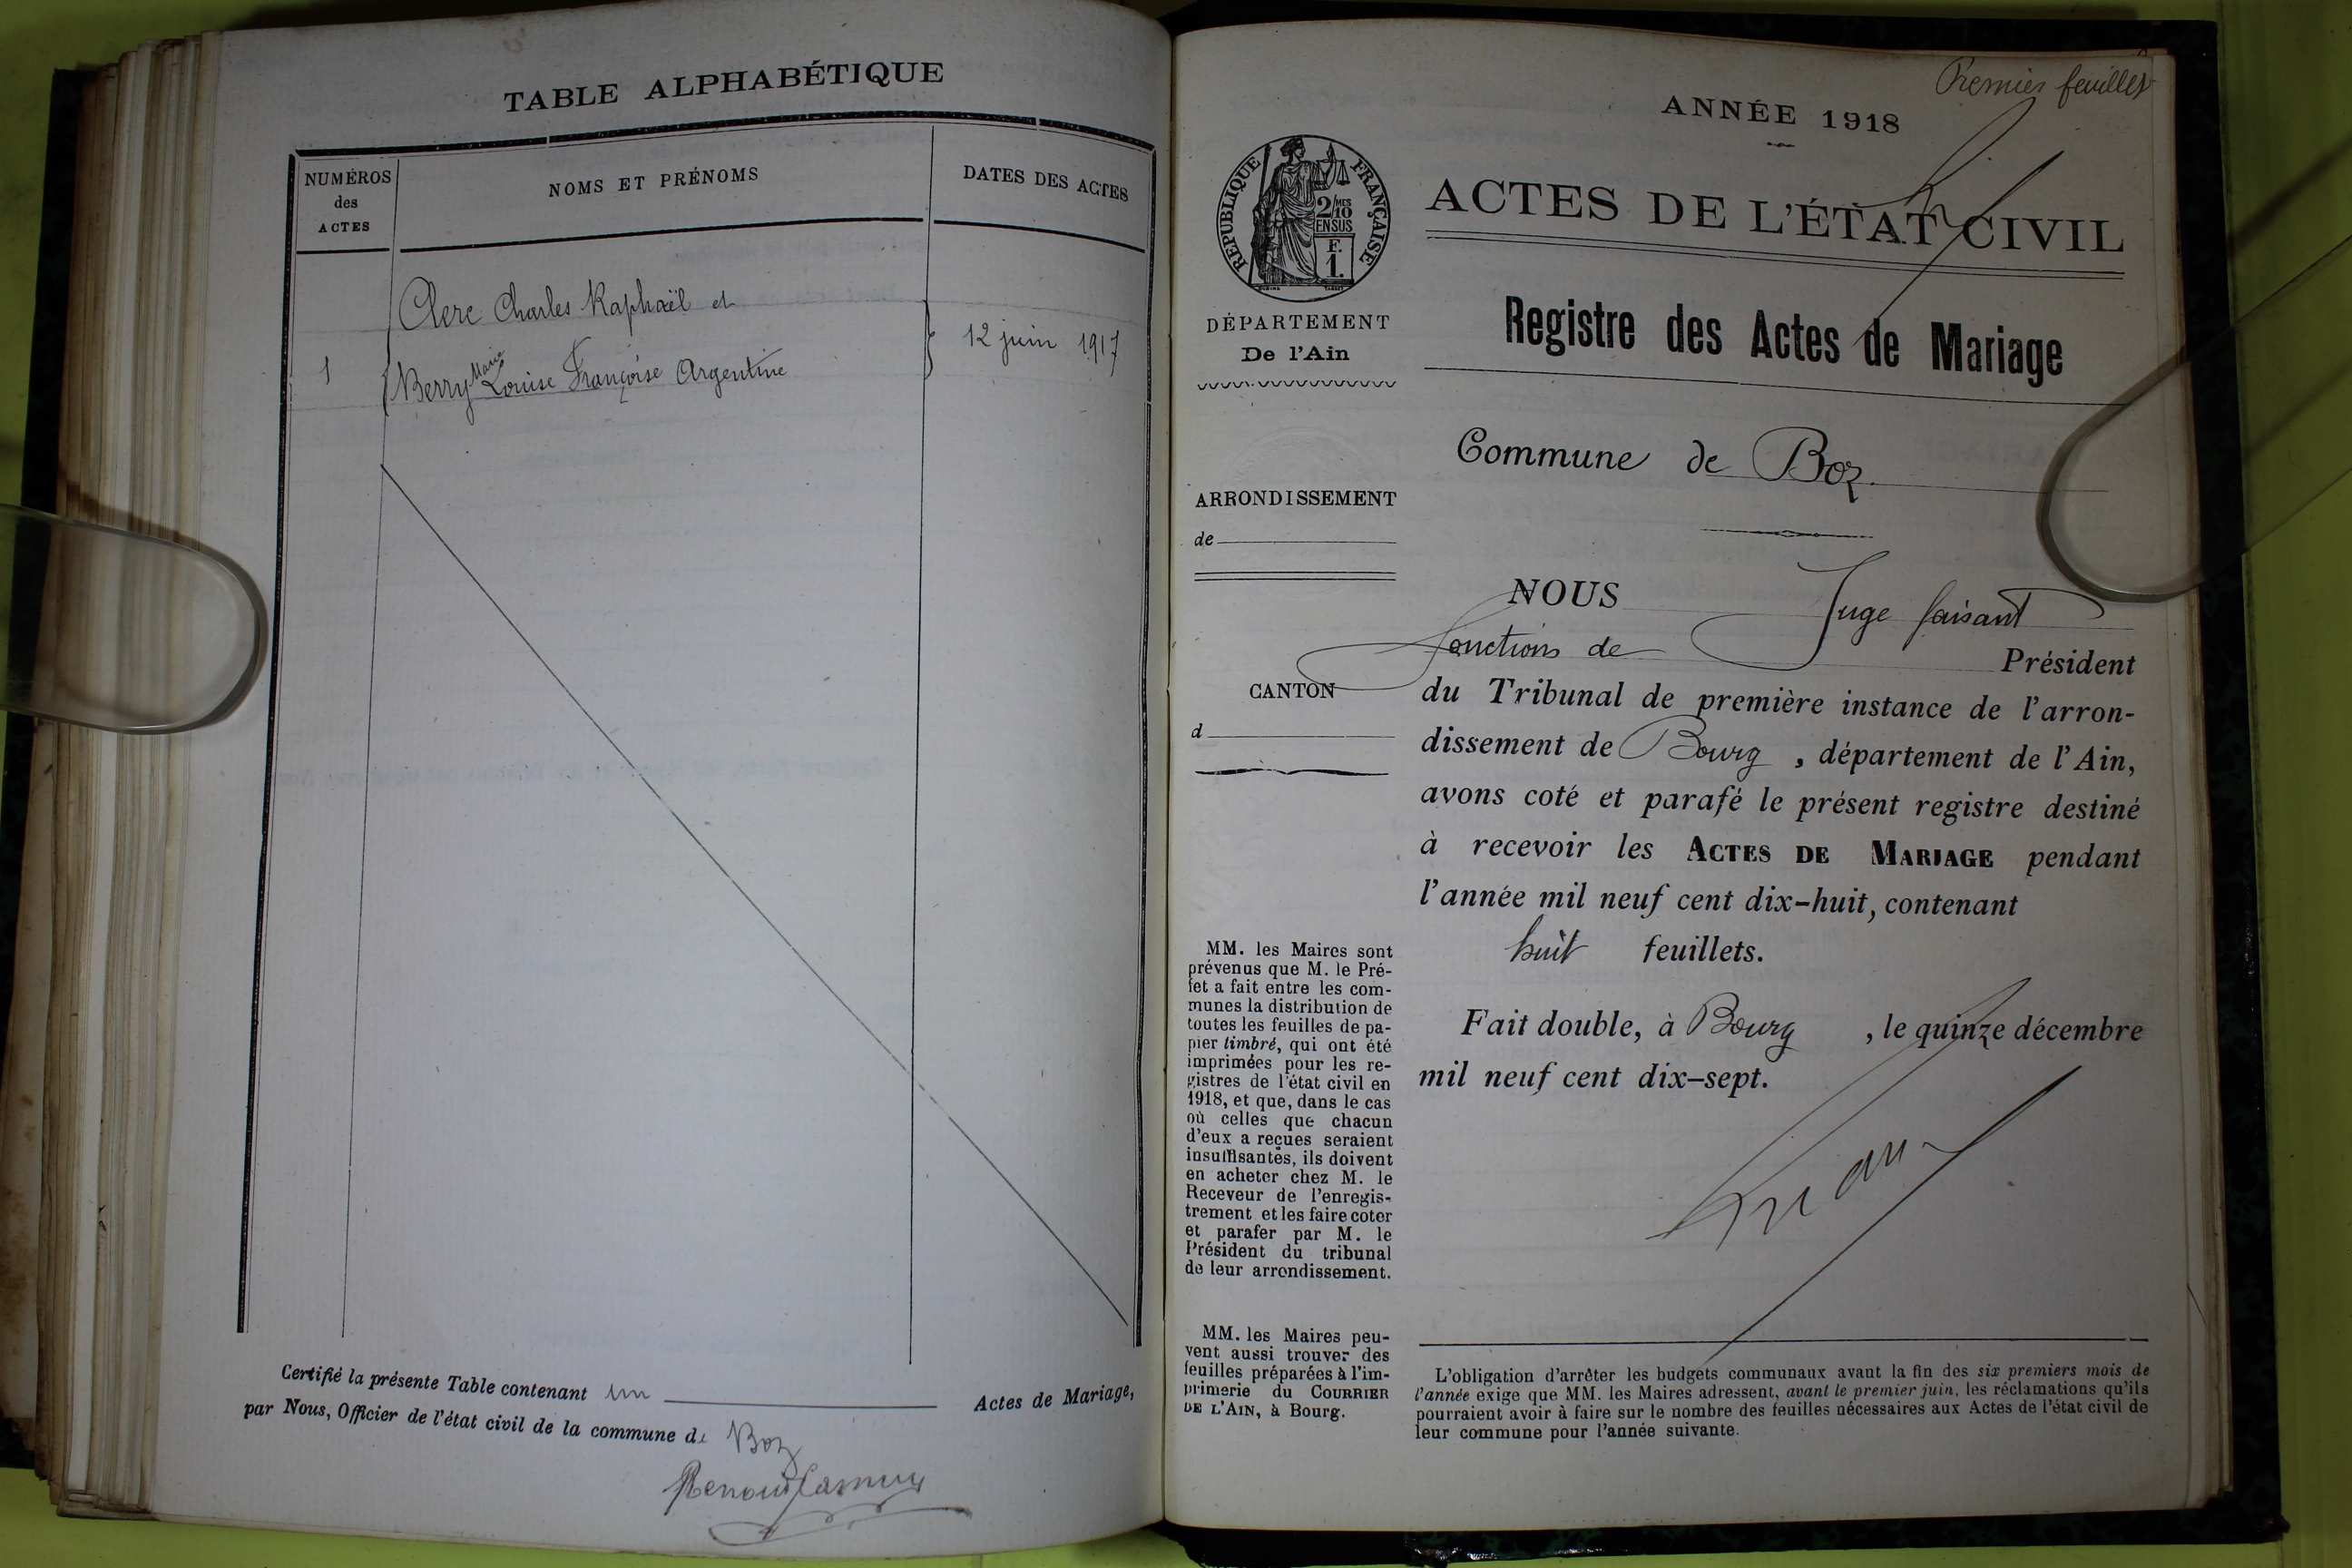 TABLE ALPHABÉTIQUE
NUMÉROS
des
ACTES
NOMS ET PRÉNOMS
DATES DES ACTES
Clerc Charles Raphaël et
1
Berry Marie Louise Françoise Argentine
12 juin 1917
Certifié la présente Table contenant un Actes de Mariage,
par Nous, Officier de l'état civil de la commune de Boz
Premier feuillet
ANNÉE 1918
RÉPUBLIQUE FRANÇAISE
2/10MES
EN SUS
F.
1.
DÉPARTEMENT
De l'Ain
ARRONDISSEMENT
de
CANTON
d
MM. les Maires sont
prévenus que M. le Pré-
fet a fait entre les com-
munes la distribution de
toutes les feuilles de pa-
pier timbré, qui ont été
imprimées pour les re-
gistres de l'état civil en
1918, et que, dans le cas
où celles que chacun
d'eux a reçues seraient
insuffisantes, ils doivent
en acheter chez M. le
Receveur de l'enregis-
trement et les faire coter
et parafer par M. le
Président du tribunal
de leur arrondissement.
MM. les Maires peu-
vent aussi trouver des
feuilles préparées à l'im-
primerie du COURRIER
DE L'AIN, à Bourg.
ACTES DE L'ÉTAT CIVIL
Registre des Actes de Mariage
Commune de Boz.
NOUS Juge faisant
fonctions de Président
du Tribunal de première instance de l'arron-
dissement de Bourg, département de l'Ain,
avons coté et parafé le présent registre destiné
à recevoir les ACTES DE MARIAGE pendant
l'année mil neuf cent dix-huit, contenant
huit feuillets.
Fait double, à Bourg, le quinze décembre
mil neuf cent dix-sept.
L'obligation d'arrêter les budgets communaux avant la fin des six premiers mois de
l'année exige que MM. les Maires adressent, avant le premier juin, les réclamations qu'ils
pourraient avoir à faire sur le nombre des feuilles nécessaires aux Actes de l'état civil de
leur commune pour l'année suivante.